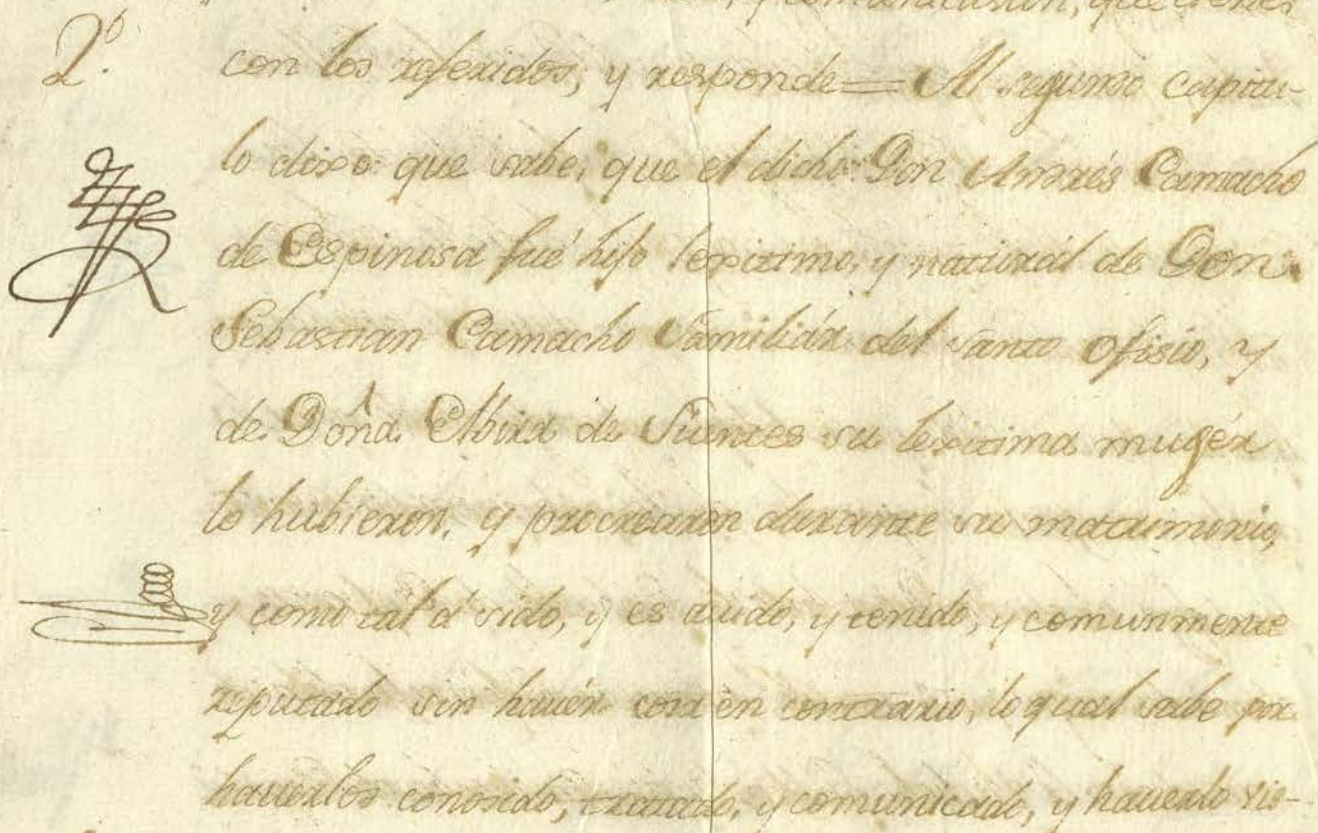 y comunicasion, que tiene
2º con los referidos, y responde = Al segundo capitu-
lo dixo que sabe, que el dicho Don Andrés Camacho
de Espinosa fué hijo lexitimo, y naturál de Don
Sebastian Camacho Familiár del santo ofisio, y
de Doña Elbira de Fuentes su lexitima mugér
lo hubieron, y procrearon durante su matrimonio,
y como tal á sido, y es auido, y tenido, y comunmente
reputado sin hauér cosa en contrario, lo qual sabe por
hauerlos conosido, tratado, y comunicado, y hauerlo vis-